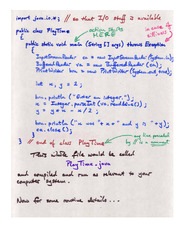 import java.io.*; // so that I/O stuff is available
public class PlayTime
in case of
errors
action starts
HERE
{ public static void main (String [] args) throws Exception
{ InputStreamReader = new InputStreamReader (System.in);
BufferedReader = new BufferedReader
PrintWriter = new PrintWriter (System.out, true);
int x, y = 2;
println ("Enter an integer.");
x = Integer.parseInt (readLine());
y = x
println ("x is " + x + " and y is " + y);
close();
}
} // end of class PlayTime
any line preceded
by // is a comment
This whole file would be called
PlayTime.java
and compiled and run as relevant to your
computer system.
Now for some routine details...